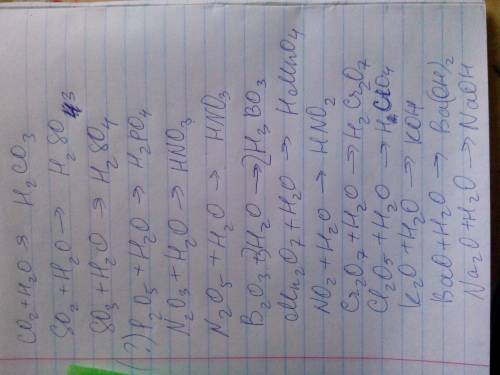 CO2 + H2O → H2CO3
SO2 + H2O → H2SO3
SO3 + H2O → H2SO4
(?) P2O5 + H2O → H2PO4
N2O3 + H2O → HNO3
N2O5 + H2O → HNO3
B2O3 + 3H2O → 2H3BO3
Mn2O7 + H2O → HMnO4
NO2 + H2O → HNO2
Cr2O7 + H2O → H2Cr2O7
Cl2O5 + H2O → H2ClO4
K2O + H2O → KOH
BaO + H2O → Ba(OH)2
Na2O + H2O → NaOH